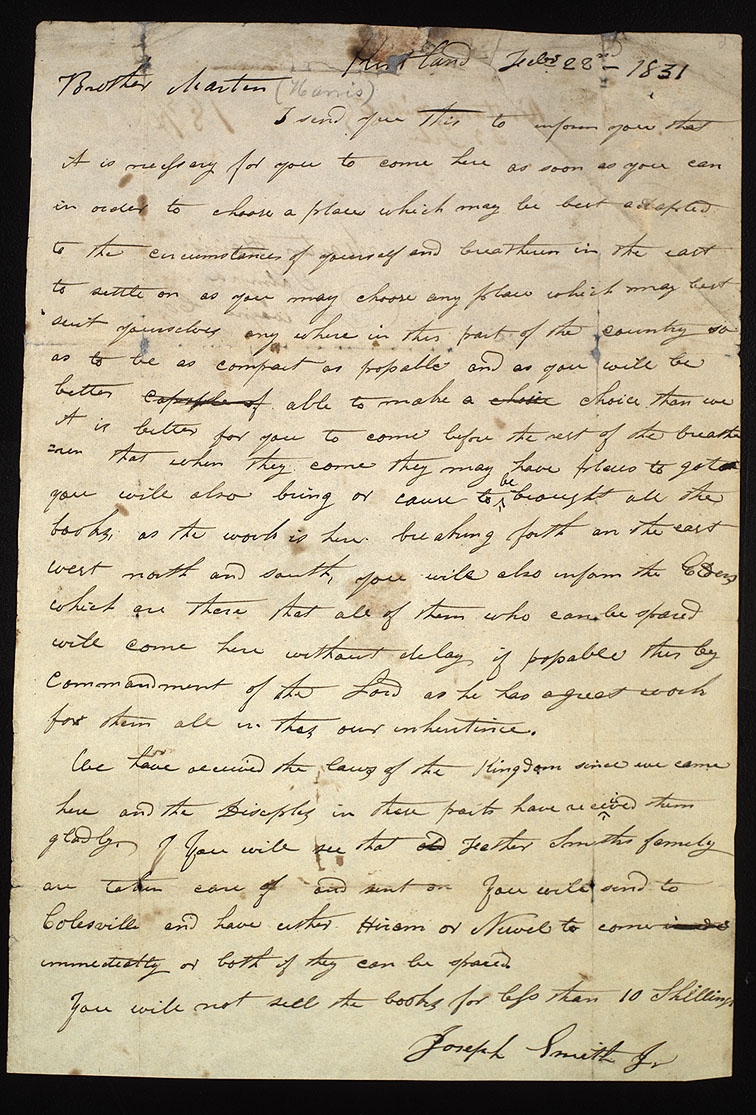 Kirtland Feb 22nd - 1831
Brother Marten (Harris)
I send you this to inform you that
it is necssary for you to come here as soon as you can
in order to choose a place which may be best adapted
to the circumstances of yourself and breatheren in the east
to settle on as you may choose any place which may best
suit yourselves any where in this part of the country so
as to be as compact as posable and as you will be
better capable of able to make a choise choice than we
it is better for you to come before the rest of the breathe
=ren that when they come they may have places to go to
you will also bring or cause to be brought all the
books, as the work is here breaking forth on the east
west north and south, you will also inform the Elders
which are there that all of them who can be spared
will come here without delay if posable this by
Commandment of the Lord as he has a great work
for them all in this our inheritince.
We have received the laws of the Kingdom since we came
here and the Disciples in these parts have received them
gladly. You will see that Feather Smiths family
are taken care of and sent on You will send to
Colesville and have either Hiram or Newel to come
immediately or both if they can be spared
You will not sell the books for less than 10 Shillings
Joseph Smith Jr